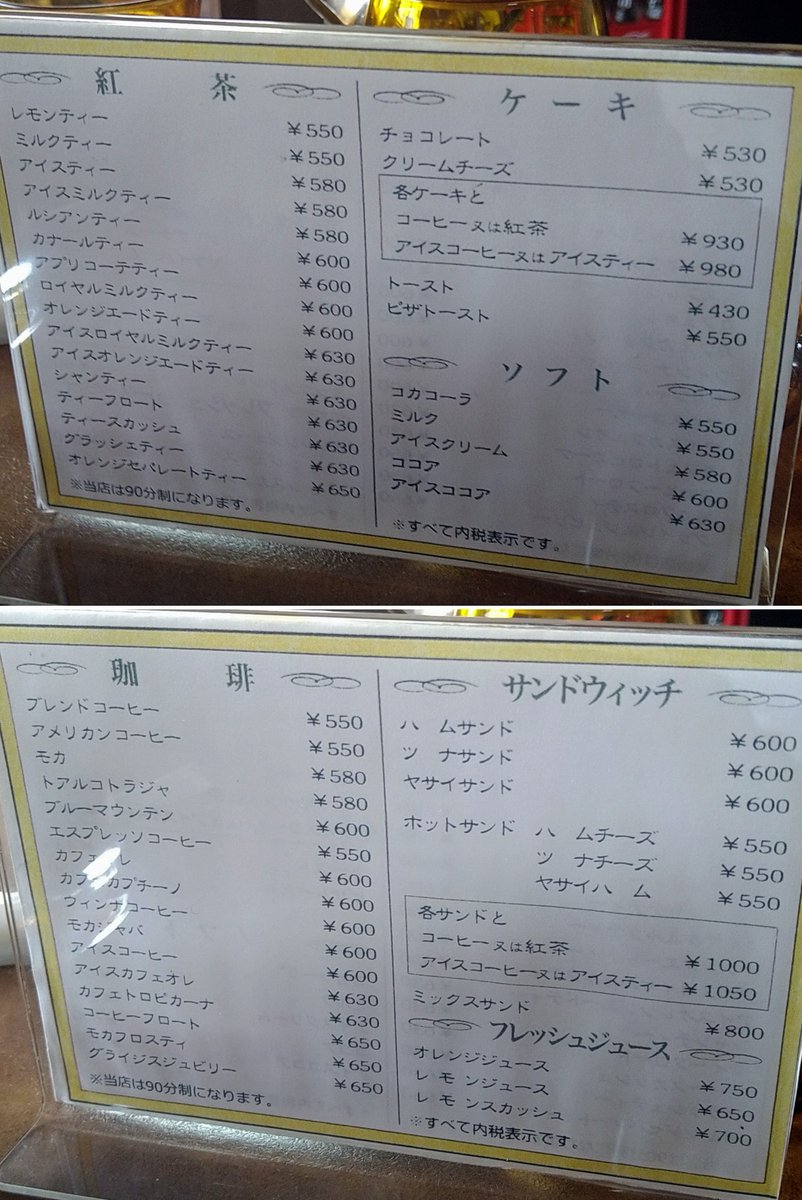 紅茶
レモンティー ¥550
ミルクティー ¥550
アイスティー ¥580
アイスミルクティー ¥580
ルシアンティー ¥580
カナールティー ¥600
アプリコーテティー ¥600
ロイヤルミルクティー ¥600
オレンジエードティー ¥600
アイスロイヤルミルクティー ¥630
アイスオレンジエードティー ¥630
シャンティー ¥630
ティーフロート ¥630
ティースカッシュ ¥630
グラッシェティー ¥630
オレンジセパレートティー ¥650
※当店は90分制になります。
ケーキ
チョコレート ¥530
クリームチーズ ¥530
各ケーキと
コーヒー又は紅茶 ¥930
アイスコーヒー又はアイスティー ¥980
トースト ¥430
ピザトースト ¥550
ソフト
コカコーラ ¥550
ミルク ¥550
アイスクリーム ¥580
ココア ¥600
アイスココア ¥630
※すべて内税表示です。
珈琲
ブレンドコーヒー ¥550
アメリカンコーヒー ¥550
モカ ¥580
トアルコトラジャ ¥580
ブルーマウンテン ¥600
エスプレッソコーヒー ¥550
カフェオレ ¥600
カフェカプチーノ ¥600
ウィンナコーヒー ¥600
モカジャバ ¥600
アイスコーヒー ¥600
アイスカフェオレ ¥630
カフェトロピカーナ ¥630
コーヒーフロート ¥650
モカフロスティ ¥650
グライジスジュビリー ¥650
※当店は90分制になります。
サンドウィッチ
ハムサンド ¥600
ツナサンド ¥600
ヤサイサンド ¥600
ホットサンド ハムチーズ ¥550
ツナチーズ ¥550
ヤサイハム ¥550
各サンドと
コーヒー又は紅茶 ¥1000
アイスコーヒー又はアイスティー ¥1050
ミックスサンド ¥800
フレッシュジュース
オレンジジュース ¥750
レモンジュース ¥650
レモンスカッシュ ¥700
※すべて内税表示です。